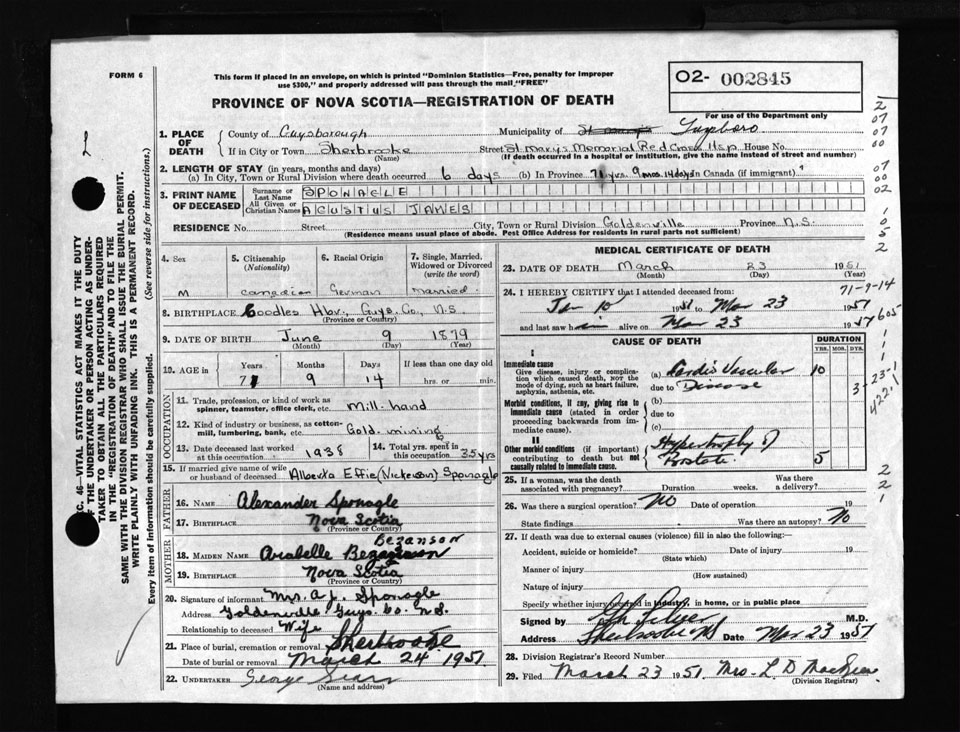 FORM 6
This form if placed in an envelope, on which is printed "Dominion Statistics—Free, penalty for improper
use $300," and properly addressed will pass through the mail "FREE"
PROVINCE OF NOVA SCOTIA—REGISTRATION OF DEATH
O2- 002845
For use of the Department only
1. PLACE OF DEATH
County of Guysborough Municipality of St Mary's
If in City or Town Sherbrooke Street St. Mary's Memorial Red Cross Hsp. House No.
(Name) (If death occurred in a hospital or institution, give the name instead of street and number)
2. LENGTH OF STAY (in years, months and days)
(a) In City, Town or Rural Division where death occurred 6 days (b) In Province 71 yrs. 9 mos. 14 days In Canada (if immigrant)
3. PRINT NAME OF DECEASED
Surname or Last Name SPONAGLE
All Given or Christian Names AGUSTUS JAMES
RESIDENCE No. Street City, Town or Rural Division Goldenville Province N.S.
(Residence means usual place of abode. Post Office Address for residents in rural parts not sufficient)
4. Sex M
5. Citizenship (Nationality) Canadian
6. Racial Origin German
7. Single, Married, Widowed or Divorced (write the word) married
8. BIRTHPLACE Coodles Hbr., Guys. Co., N.S.
(Province or Country)
9. DATE OF BIRTH June 9 1879
(Month) (Day) (Year)
10. AGE in Years Months Days If less than one day old
71 9 14 hrs. or min.
OCCUPATION
11. Trade, profession or kind of work as spinner, teamster, office clerk, etc. Mill hand
12. Kind of industry or business, as cotton-mill, lumbering, bank, etc. Gold mining
13. Date deceased last worked at this occupation 1938
14. Total yrs. spent in this occupation 35 yrs
15. If married give name of wife or husband of deceased Alberta Effie (Nickerson) Sponagle
FATHER
16. Name Alexander Sponagle
17. Birthplace Nova Scotia
(Province or Country)
MOTHER
Bezanson
18. Maiden Name Arabelle
19. Birthplace Nova Scotia
(Province or Country)
20. Signature of informant Mrs. A. J. Sponagle
Address Goldenville Guys. Co. N.S.
Relationship to deceased Wife
21. Place of burial, cremation or removal Sherbrooke
Date of burial or removal March 24 1951
22. UNDERTAKER George
(Name and address)
MEDICAL CERTIFICATE OF DEATH
23. DATE OF DEATH March 23 1951
(Month) (Day) (Year)
24. I HEREBY CERTIFY that I attended deceased from:
Jan 10 1951 to Mar 23 1951
and last saw him alive on Mar 23 1951
71-9-14
CAUSE OF DEATH
DURATION
YRS. MOS. DYS.
I
Immediate cause
Give disease, injury or complication which caused death, NOT the mode of dying, such as heart failure, asphyxia, asthenia, etc.
(a) Cardio Vascular 10
due to Disease
Morbid conditions, if any, giving rise to immediate cause (stated in order proceeding backwards from immediate cause).
(b)
due to
(c)
II
Other morbid conditions (if important) contributing to death but not causally related to immediate cause.
Hypertrophy of
Prostate. 5
25. If a woman, was the death associated with pregnancy? Duration weeks. Was there a delivery?
26. Was there a surgical operation? No Date of operation 19
State findings Was there an autopsy? No
27. If death was due to external causes (violence) fill in also the following:—
Accident, suicide or homicide? Date of injury 19
(State which)
Manner of injury
(How sustained)
Nature of injury
Specify whether injury occurred in industry, in home, or in public place
Signed by M.D.
Address Sherbrooke NS Date Mar 23 1951
28. Division Registrar's Record Number
29. Filed March 23 1951. Mrs. L D
(Division Registrar)
SEC. 46—VITAL STATISTICS ACT MAKES IT THE DUTY
OF THE UNDERTAKER OR PERSON ACTING AS UNDER-
TAKER TO OBTAIN ALL THE PARTICULARS REQUIRED
IN THE "REGISTRATION OF DEATH" AND TO FILE THE
SAME WITH THE DIVISION REGISTRAR WHO SHALL ISSUE THE BURIAL PERMIT.
WRITE PLAINLY WITH UNFADING INK. THIS IS A PERMANENT RECORD.
Every item of information should be carefully supplied. (See reverse side for instructions.)